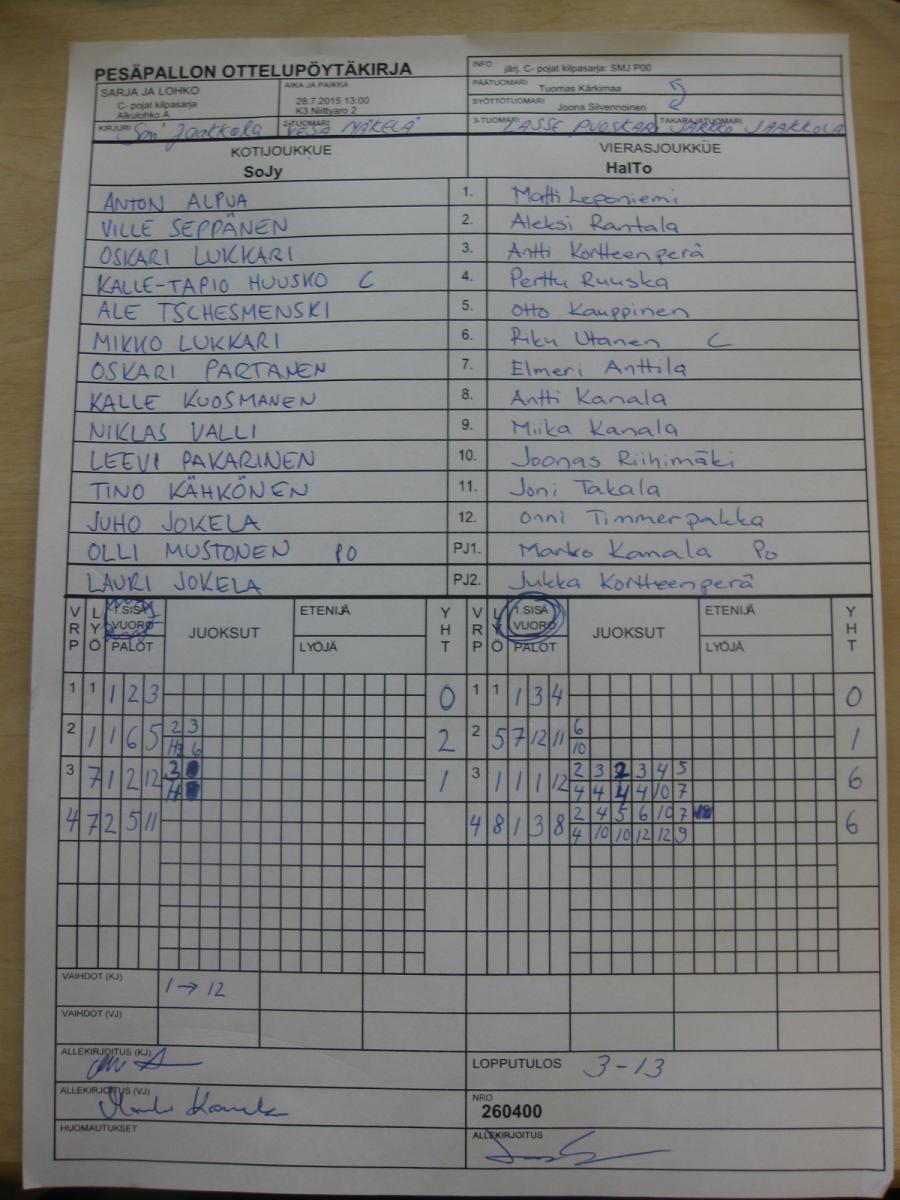 PESÄPALLON OTTELUPÖYTÄKIRJA
INFO järj. C- pojat kilpasarja: SMJ P00
SARJA JA LOHKO
C- pojat kilpasarja
Alkulohko A
AIKA JA PAIKKA
28.7.2015 13:00
K3 Niittyaro 2
PÄÄTUOMARI Tuomas Kärkimaa
SYÖTTÖTUOMARI Joona Silvennoinen
KIRJURI Jaakkola
2-TUOMARI VESA MÄKELÄ
3-TUOMARI LASSE PUOSKARI
TAKARAJATUOMARI JARKKO JAAKKOLA
KOTIJOUKKUE VIERASJOUKKUE
SoJy HalTo
ANTON ALPUA 1. Matti Leponiemi
VILLE SEPPÄNEN 2. Aleksi Rantala
OSKARI LUKKARI 3. Antti Kortteenperä
KALLE-TAPIO HUUSKO C 4. Perttu Ruuska
ALE TSCHESMENSKI 5. Otto Kauppinen
MIKKO LUKKARI 6. Riku Utanen C
OSKARI PARTANEN 7. Elmeri Anttila
KALLE KUOSMANEN 8. Antti Kanala
NIKLAS VALLI 9. Miika Kanala
LEEVI PAKARINEN 10. Joonas Riihimäki
TINO KÄHKÖNEN 11. Joni Takala
JUHO JOKELA 12. Onni Timmerpakka
OLLI MUSTONEN PO PJ1. Marko Kamala Po
LAURI JOKELA PJ2. Jukka Kortteenperä
VRP LYÖ 1.SISÄ VUORO PALOT JUOKSUT ETENIJÄ LYÖJÄ YHT VRP LYÖ 1.SISÄ VUORO PALOT JUOKSUT ETENIJÄ LYÖJÄ YHT
1 1 1 2 3 0 1 1 1 3 4 0
2 1 1 6 5 2 3 2 2 5 7 12 11 6 1
6 10
3 7 1 2 12 3 1 3 1 1 1 12 2 3 2 3 4 5 6
4 4 4 4 4 10 7
4 7 2 5 11 4 8 1 3 8 2 4 5 6 10 7 6
4 10 10 12 12 9
VAIHDOT (KJ) 1 → 12
VAIHDOT (VJ)
ALLEKIRJOITUS (KJ)
LOPPUTULOS 3-13
ALLEKIRJOITUS (VJ)
NRO
260400
HUOMAUTUKSET
ALLEKIRJOITUS